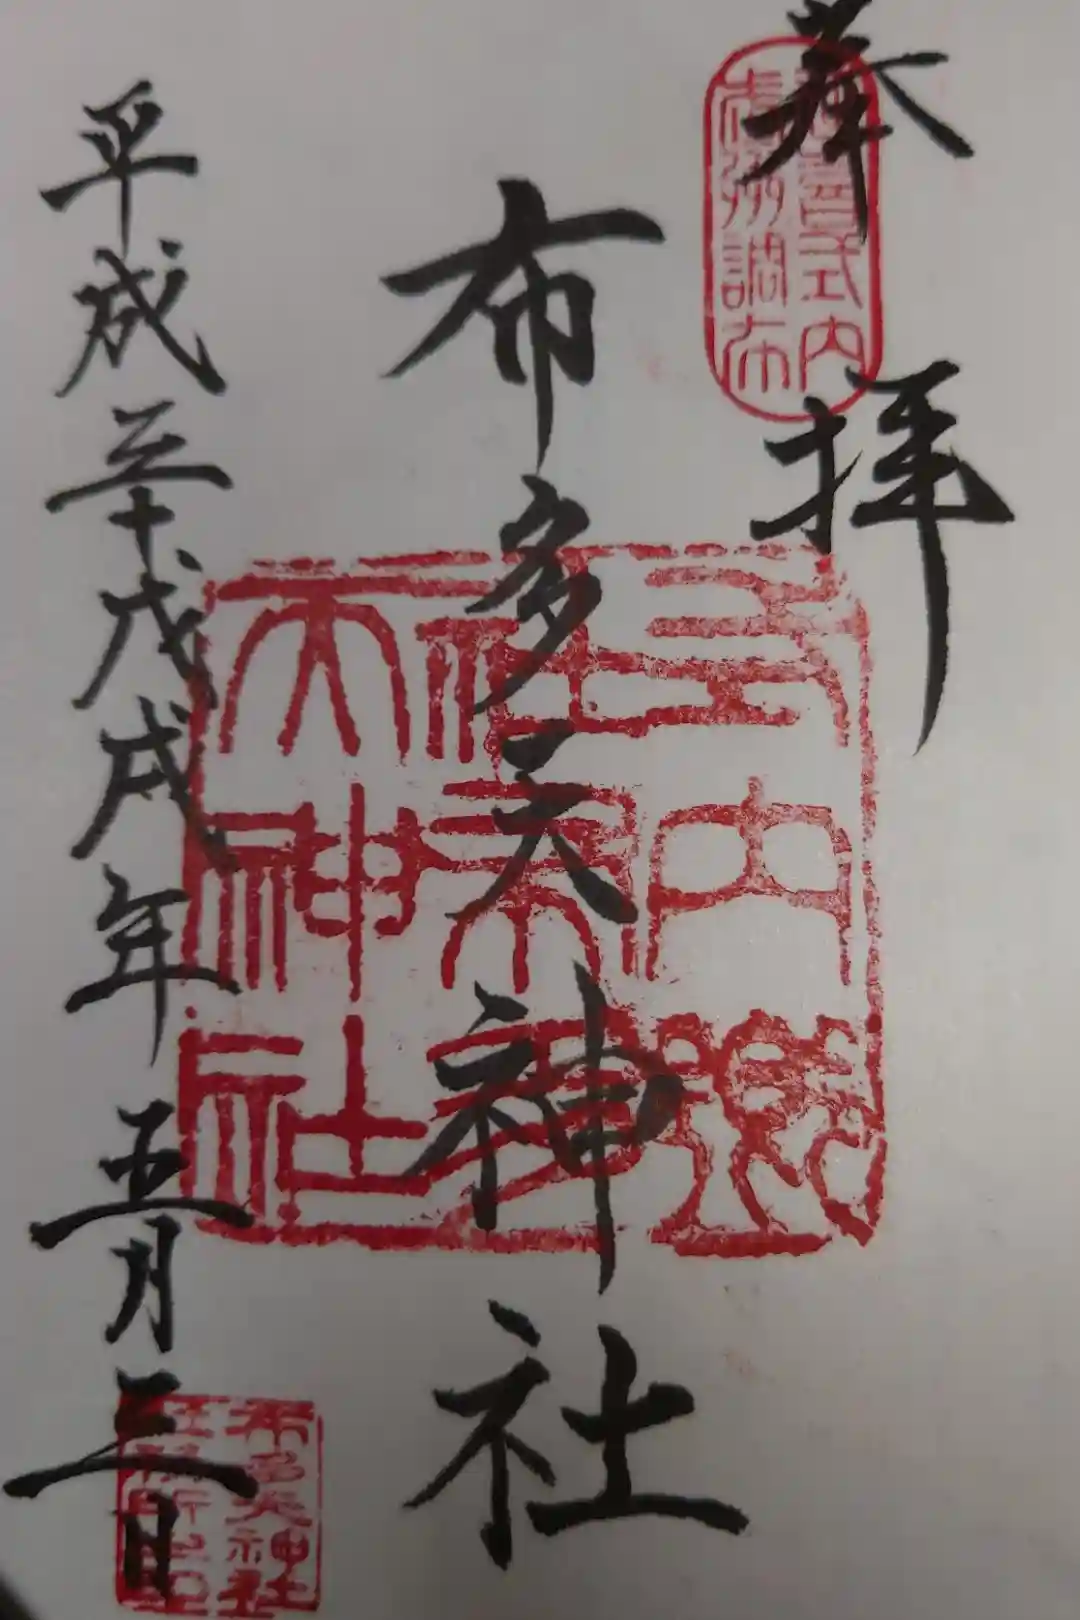 奉拝
延喜式内
武州調布
布多天神社
式内郷
社布多
天神社
平成三十戊戌年五月三日
布多天神社
社務所之印